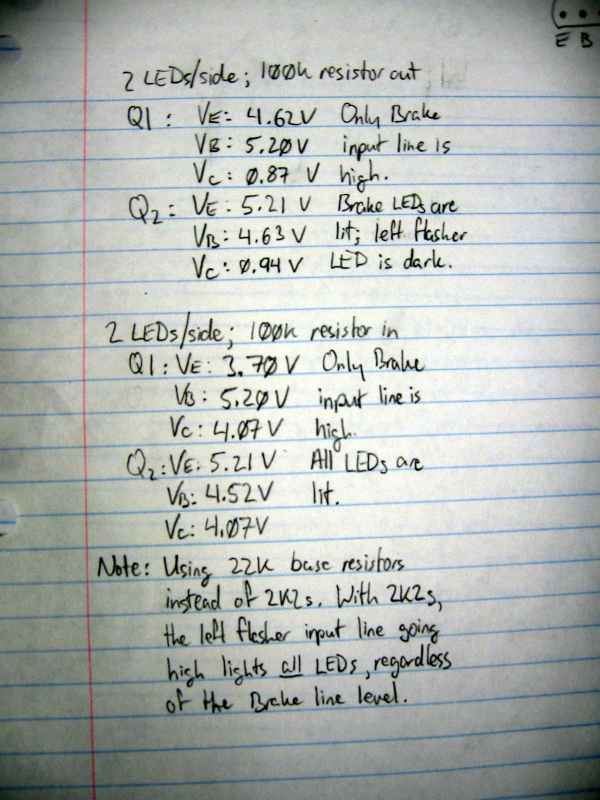 E B
2 LEDs/side; 100k resistor out
Q1: VE: 4.62V Only Brake
VB: 5.20V input line is
VC: 0.87 V high.
Q2: VE: 5.21 V Brake LEDs are
VB: 4.63 V lit; left flasher
VC: 0.94 V LED is dark.
2 LEDs/side; 100k resistor in
Q1: VE: 3.70V Only Brake
VB: 5.20V input line is
VC: 4.07V high.
Q2: VE: 5.21 V All LEDs are
VB: 4.52V lit.
VC: 4.07V
Note: Using 22K base resistors
instead of 2K2s. With 2K2s,
the left flasher input line going
high lights all LEDs, regardless
of the Brake line level.